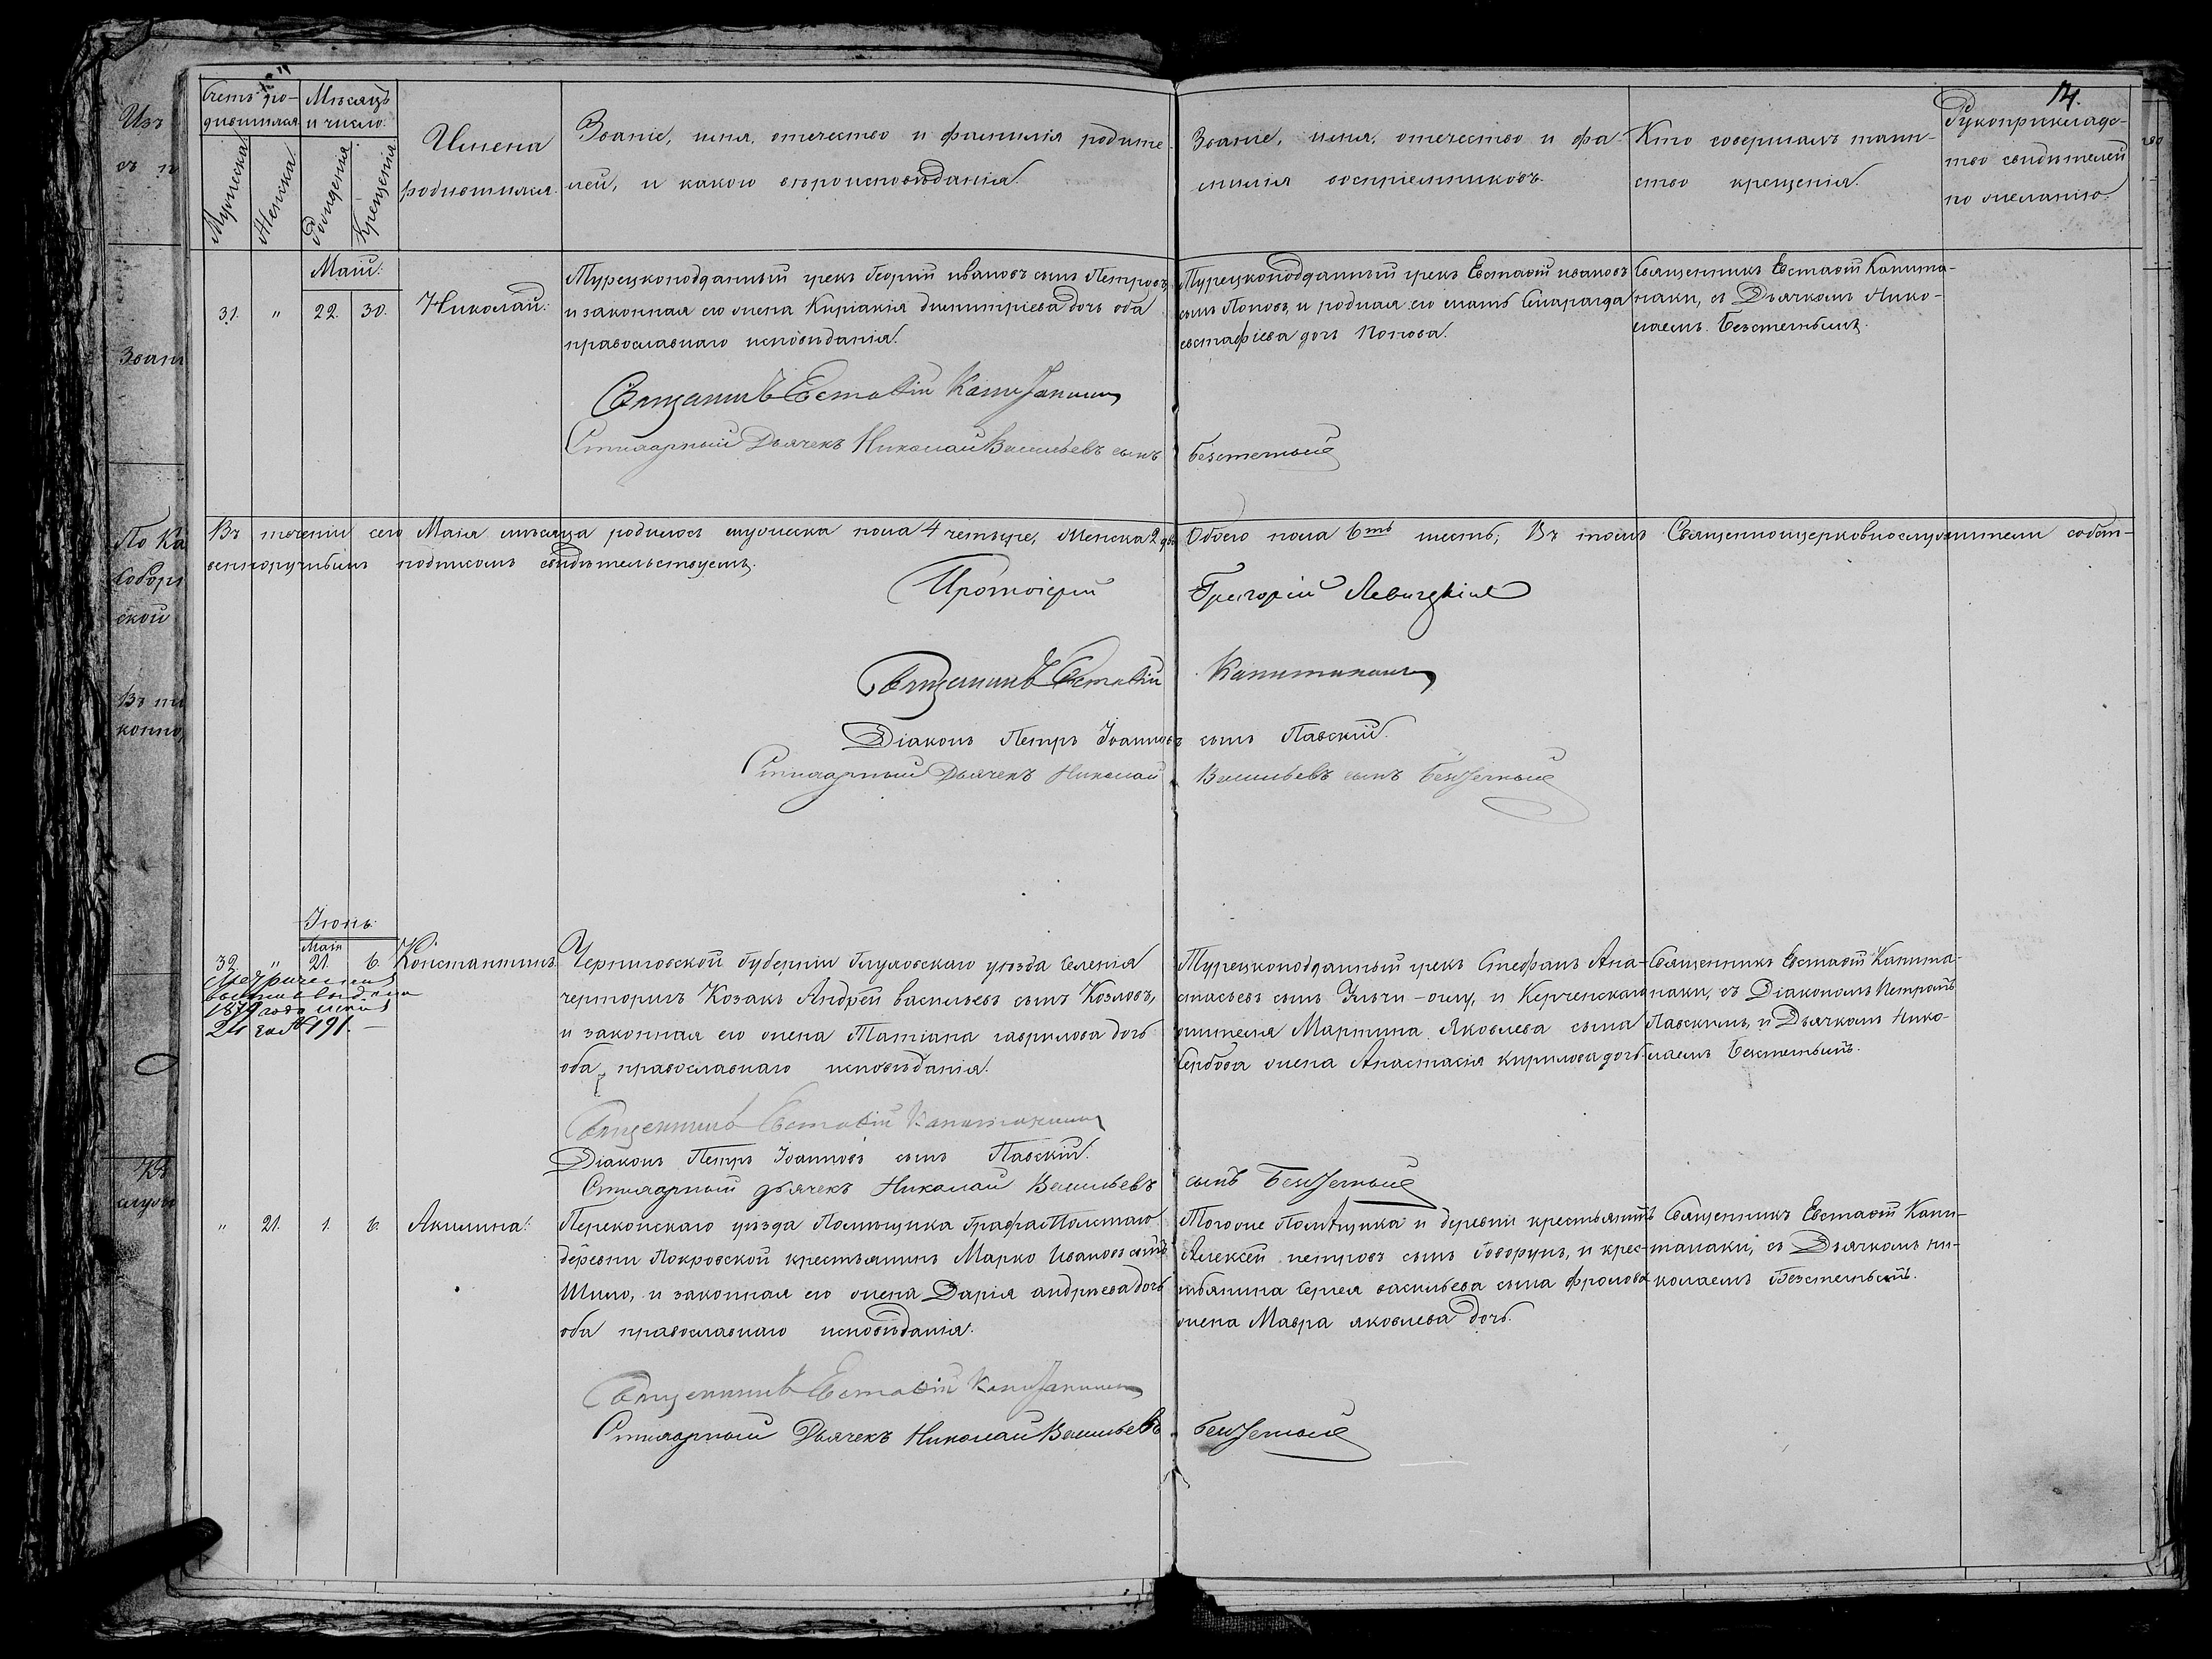 14.
Счетъ ро-
дившихся
Мѣсяцъ
и число.
Мужеска
Женска
Рожденія
Крещенія
Имена
родившихся.
Званіе, имя, отечество и фамилія родите-
лей, и какого вѣроисповѣданія.
Званіе, имя, отечество и фа-
милія воспріемниковъ.
Кто совершалъ таин-
ство крещенія.
Рукоприкладс-
тво свидѣтелей
по желанію.
Маій.
31. " 22. 30. Николай.
Турецкоподданный грекъ Георгій ивановъ сынъ Петровъ,
и законная его жена Киріакія димитріева дочь оба
православнаго исповѣданія.
Турецкоподданный грекъ Евстаѳій ивановъ
сынъ Поповъ, и родная его мать Смарагда
евстафіева дочь Попова.
Священникъ Евстаѳій Капита-
наки, съ Дьячкомъ Нико-
лаемъ Безстетнымъ.
Священникъ Евстаѳій Капитанаки
Стихарный Дьячекъ Николай Васильевъ сынъ Безстетный
Въ теченіи сего Маія мѣсяца родилось мужеска пола 4 четыре, Женска 2 два Обоего пола 6ть шесть; Въ томъ Священноцерковнослужители собст-
венноручнымъ подписомъ свидѣтельствуемъ.
Протоіерей Григорій
Священникъ Евстаѳій Капитанаки
Діаконъ Петръ Іоанновъ сынъ Павскій.
Стихарный Дьячекъ Николай Васильевъ сынъ Безстетный
Іюнь.
Маія
32 " 21. 6. Константинъ.
1879 года
24 за № 191. —
Черниговской Губерніи Глуховскаго уѣзда Селенія
черторигъ Козакъ Андрей васильевъ сынъ Козловъ,
и законная его жена Татіана гаврилова дочь
оба православнаго исповѣданія.
Турецкоподданный грекъ Стефанъ Ана-
стасьевъ сынъ -оглу, и Керченскаго
жителя Мартина Яковлева сына
Сербова жена Анастасія кирилова дочь.
Священникъ Евстаѳій Капита-
наки, съ Діакономъ Петромъ
Павскимъ, и Дьячкомъ Нико-
лаемъ Безстетнымъ.
Священникъ Евстаѳій Капитанаки
Діаконъ Петръ Іоанновъ сынъ Павскій.
Стихарный дьячекъ Николай Васильевъ сынъ Безстетный
" 21. 1. 6. Акилина.
Перекопскаго уѣзда Помѣщика Графа Толстаго
деревни Покровской крестьянинъ Марко Ивановъ сынъ
Шило, и законная его жена Дарія андреева дочь
оба православнаго исповѣданія.
Тогоже Помѣщика и деревни крестьянинъ
Алексей петровъ сынъ Говорунъ, и крес-
тьянина Сергея васильева сына фролова
жена Мавра яковлева дочь.
Священникъ Евстаѳій Капи-
танаки, съ Дьячкомъ ни-
колаемъ Безстетнымъ.
Священникъ Евстаѳій Капитанаки
Стихарный Дьячекъ Николай Васильевъ Безстетный
Изъ
съ п
Зван
По Ка
Собор
ской